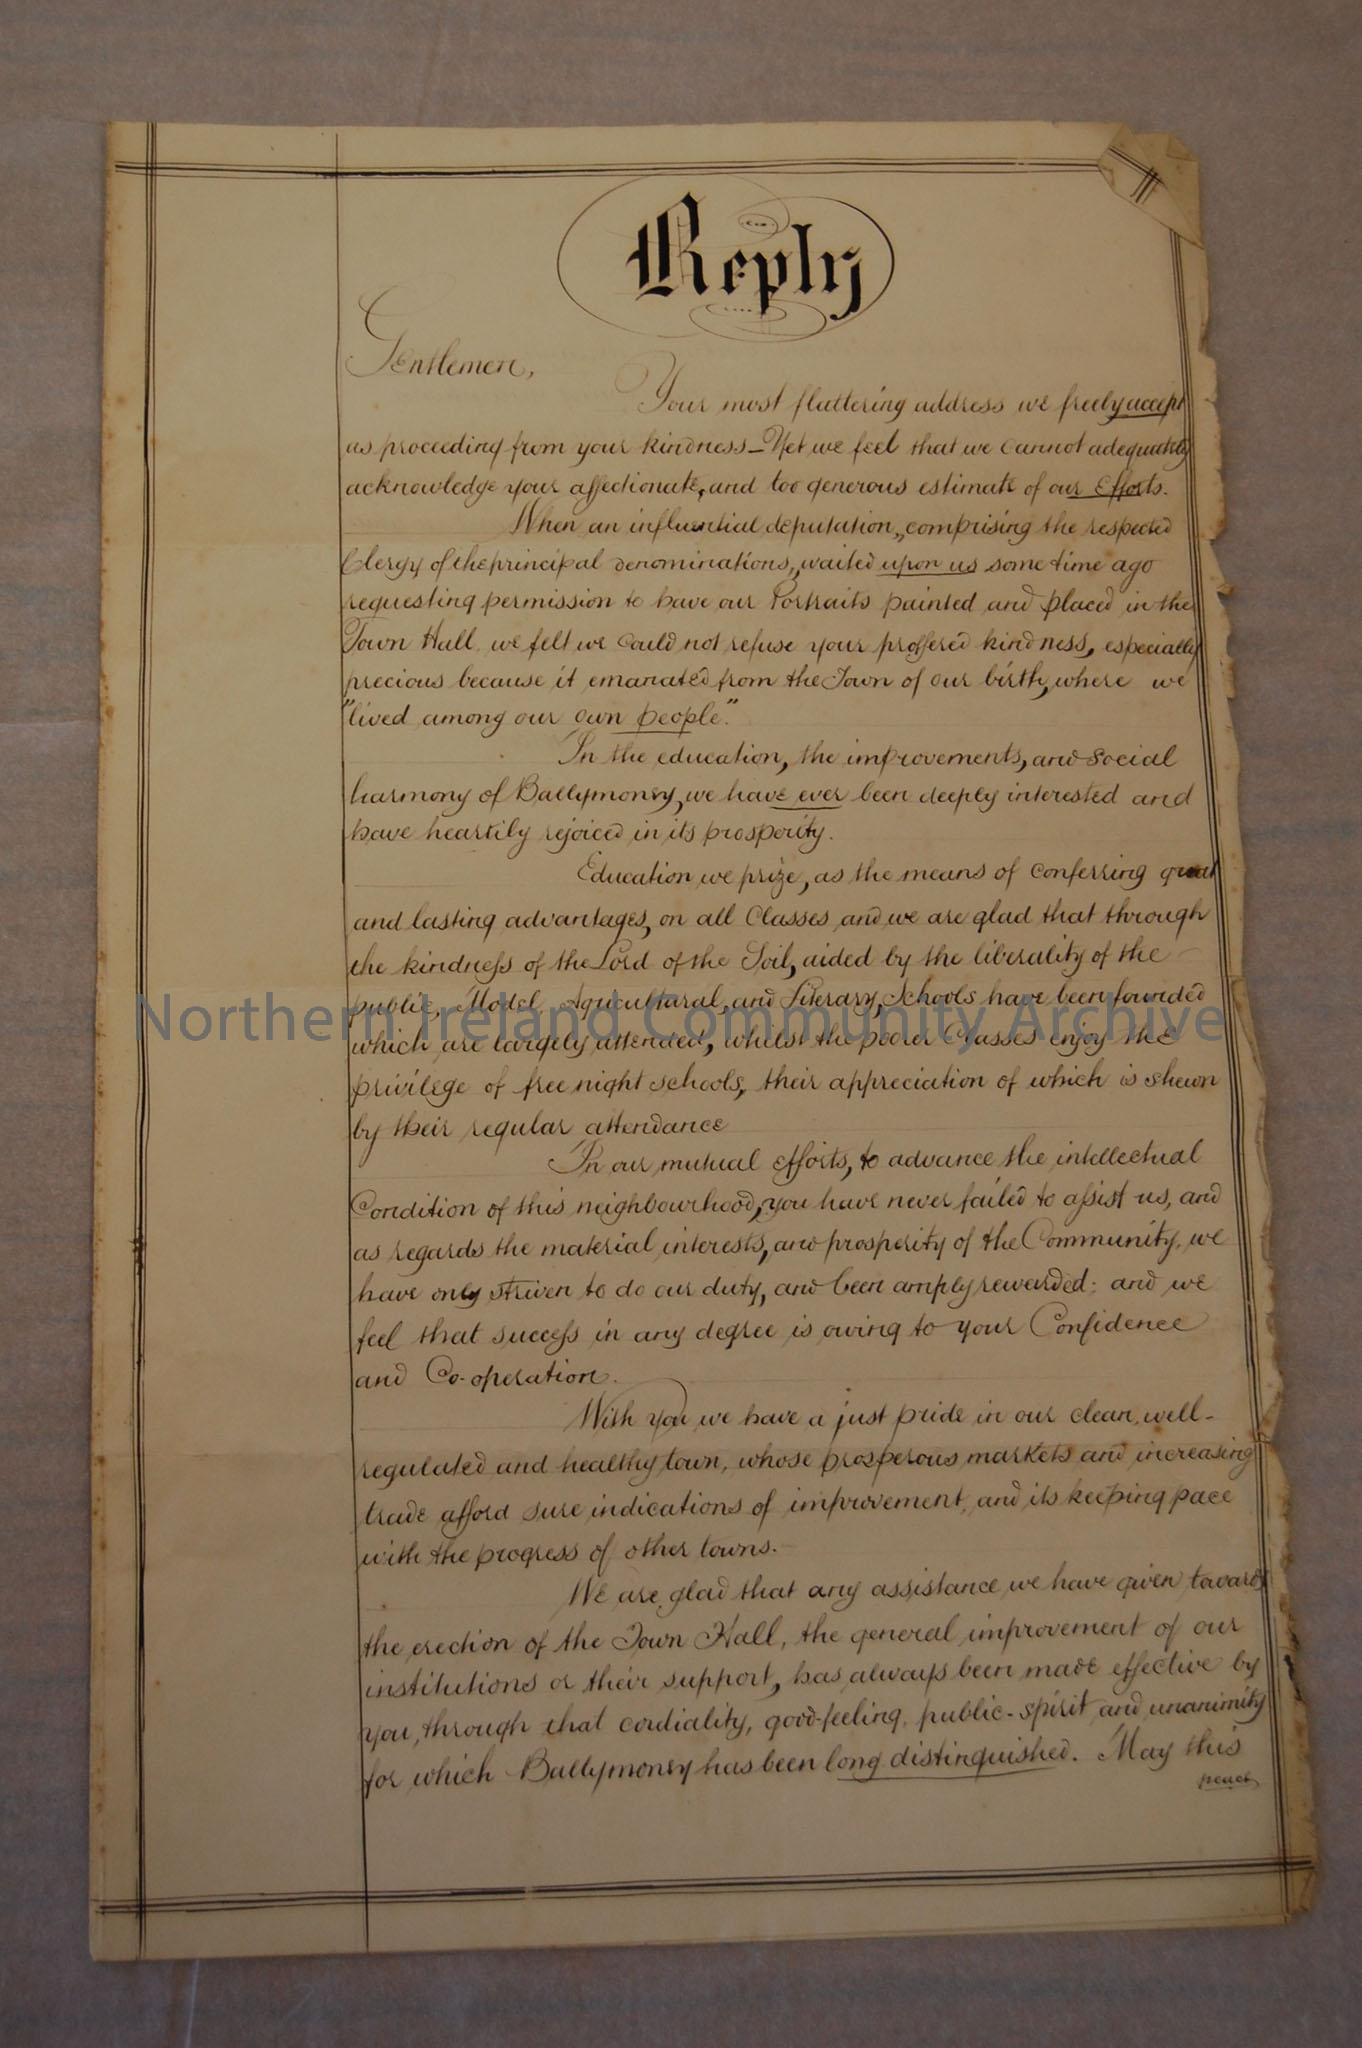 Reply
Gentlemen,
Your most flattering address we freely accept
as proceeding from your kindness – Yet we feel that we cannot adequately
acknowledge your affectionate, and too generous estimate of our Efforts.
When an influential deputation, comprising the respected
Clergy of the principal denominations, waited upon us some time ago
requesting permission to have our Portraits painted and placed in the
Town Hall, we felt we could not refuse your proffered kindness, especially
precious because it emanated from the Town of our birth, where we
"lived among our own people."
In the education, the improvements, and social
harmony of Ballymoney, we have ever been deeply interested and
have heartily rejoiced in its prosperity.
Education we prize, as the means of conferring great
and lasting advantages, on all Classes and we are glad that through
the kindness of the Lord of the Soil, aided by the liberality of the
public, Model, Agricultural, and Literary, Schools have been founded
Northern Ireland Community Archive
which are largely attended, whilst the poorer Classes enjoy the
privilege of free night schools, their appreciation of which is shewn
by their regular attendance
In our mutual efforts, to advance the intellectual
Condition of this neighbourhood, you have never failed to assist us, and
as regards the material interests, and prosperity of the Community, we
have only striven to do our duty, and been amply rewarded: and we
feel that success in any degree is owing to your Confidence
and Co-operation.
With you we have a just pride in our clean, well-
regulated and healthy town, whose prosperous markets and increasing
trade afford sure indications of improvement, and its keeping pace
with the progress of other towns.
We are glad that any assistance we have given towards
the erection of the Town Hall, the general improvement of our
institutions or their support, has always been made effective by
you, through that cordiality, good-feeling, public-spirit and unanimity
for which Ballymoney has been long distinguished. May this
peace